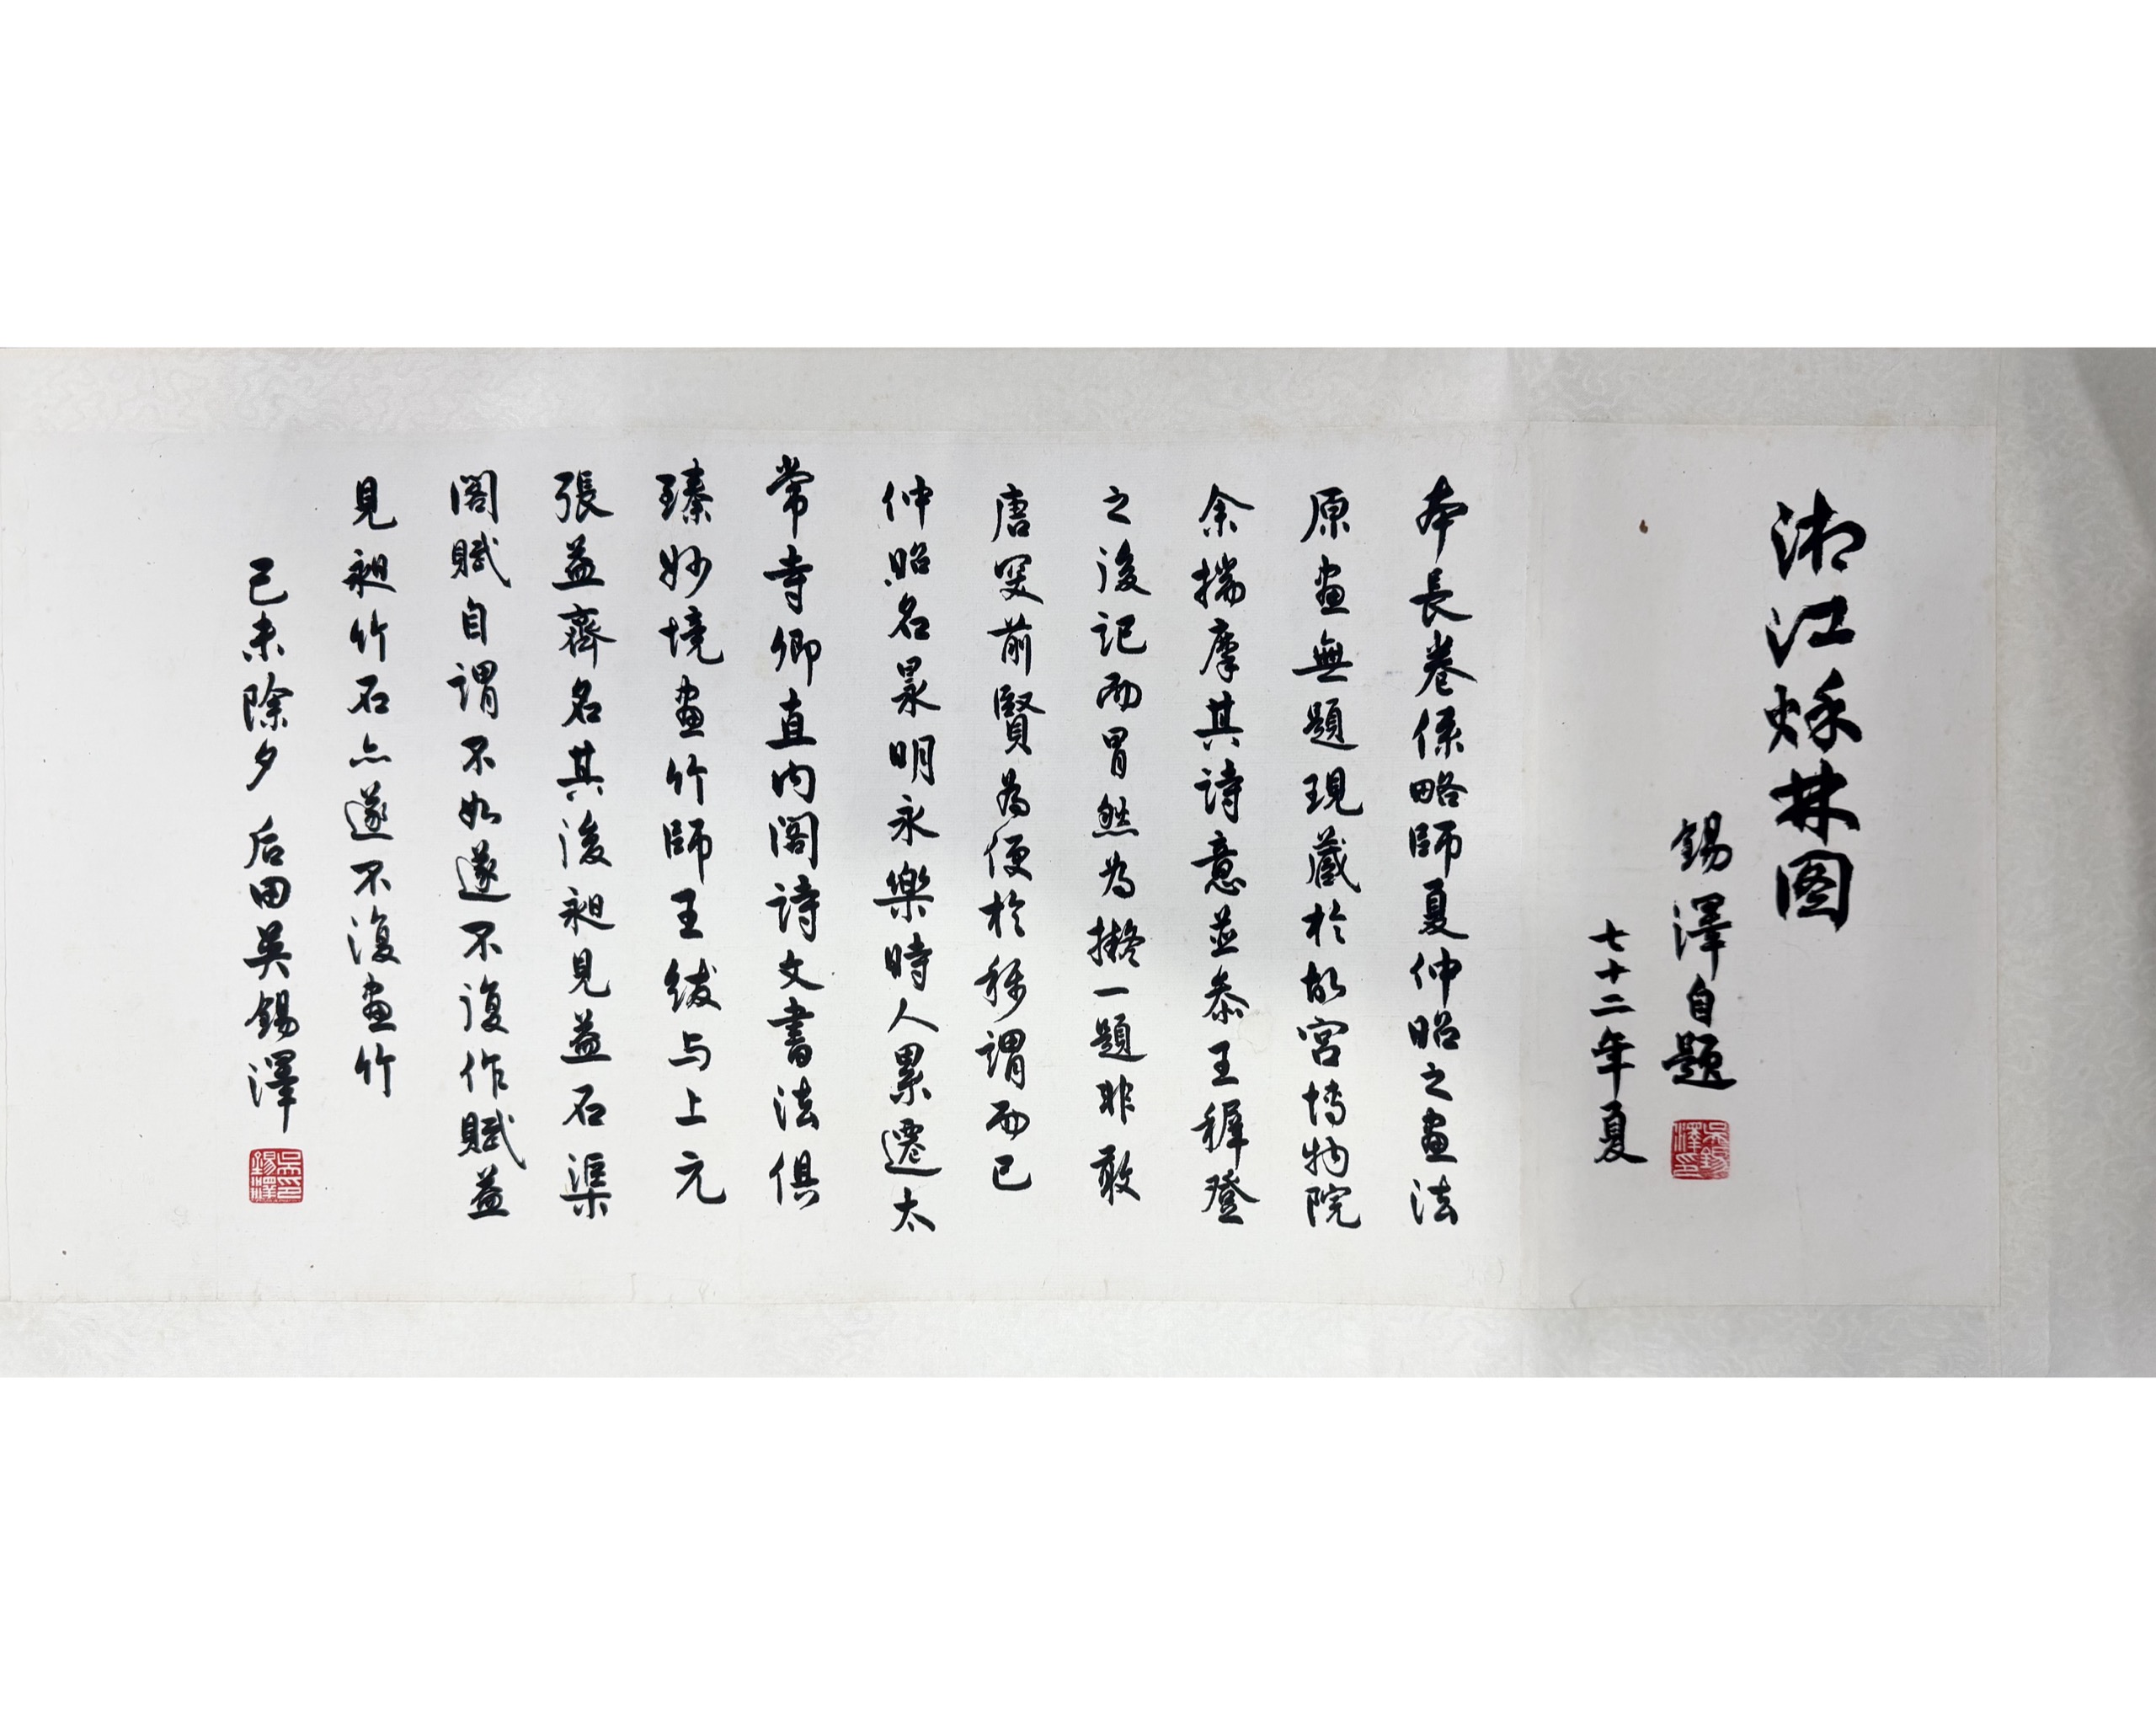 湘江烁林图
錫澤自题
七十二年夏
吳錫澤印
本長卷係略師夏仲昭之畫法
原畫無題現藏於故宮博物院
余揣摩其詩意並叅王穉登
之後記而冒然為擬一題非敢
唐突前賢為便於稱謂而已
仲昭名㫤明永樂時人累遷太
常寺卿直内閣詩文書法俱
臻妙境畫竹師王紱与上元
張益齊名其後昶見益石渠
閣賦自謂不如遂不復作賦益
見昶竹石亦遂不復畫竹
己未除夕 后田吳錫澤
吳錫澤印